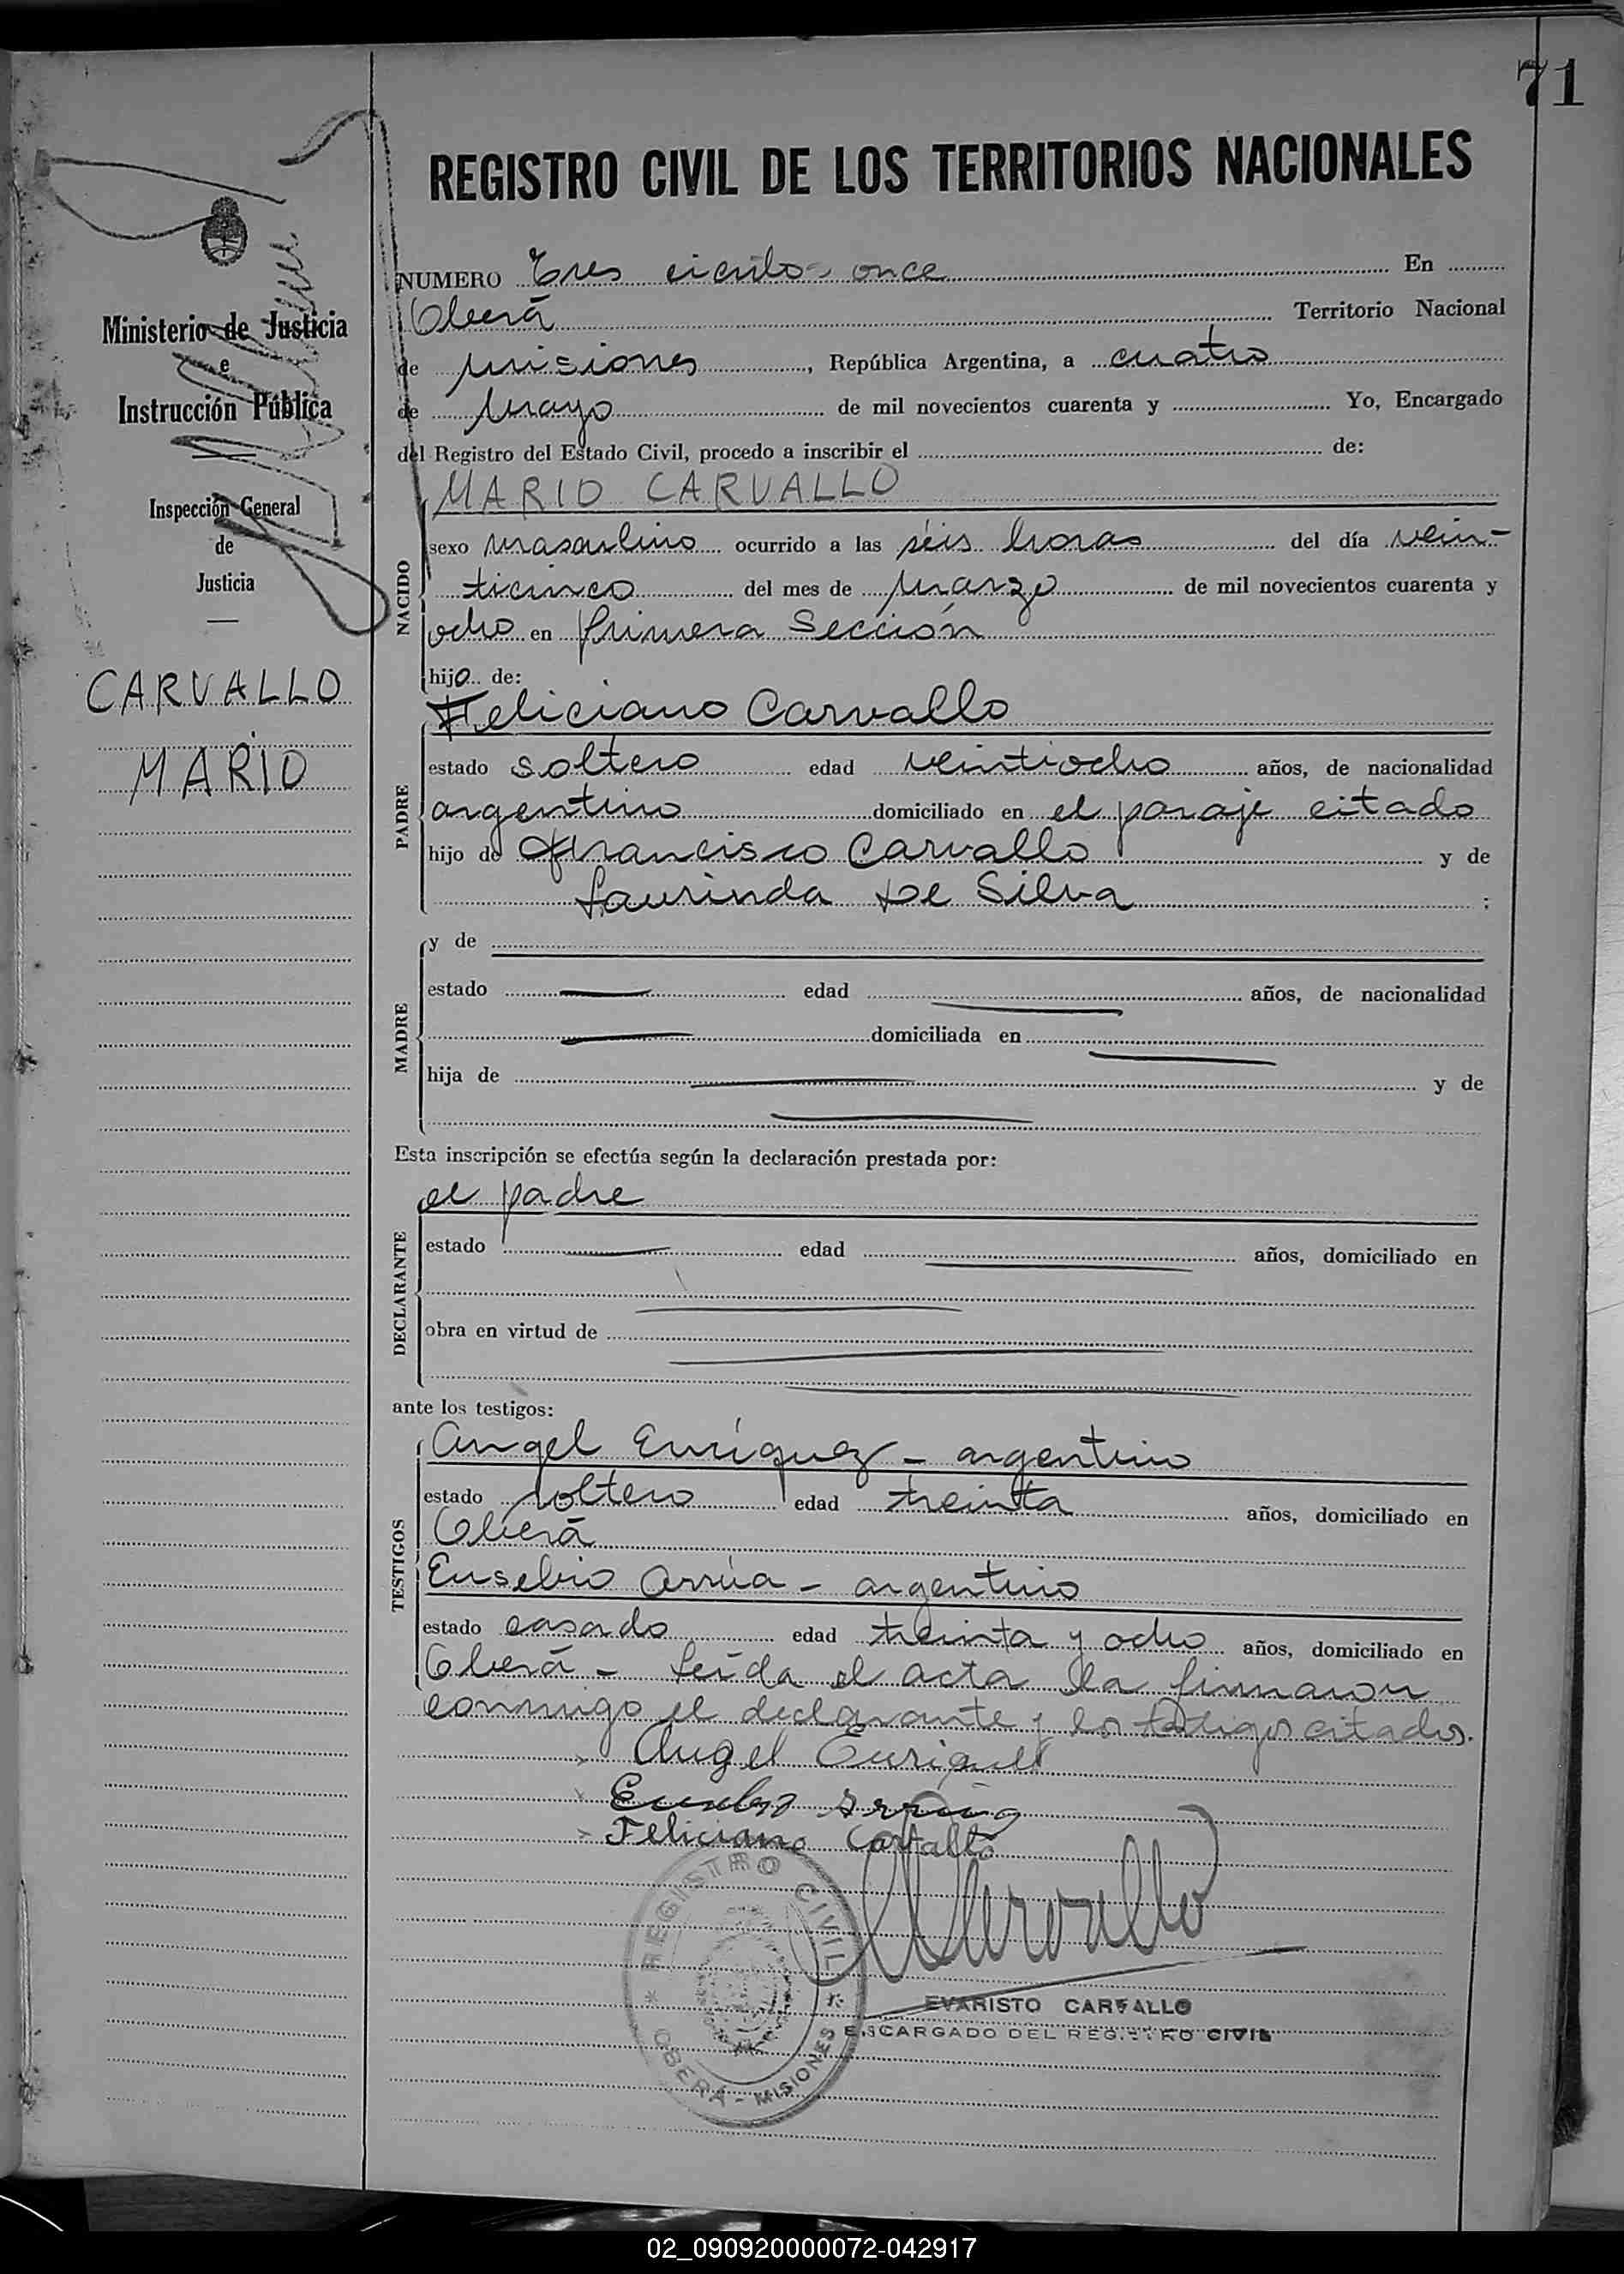 71
REGISTRO CIVIL DE LOS TERRITORIOS NACIONALES
Ministerio de Justicia
e
Instrucción Pública
Inspección General
de
Justicia
CARVALLO
MARIO
NUMERO Tres ciento once En
Oberá Territorio Nacional
de Misiones, República Argentina, a cuatro
de Mayo de mil novecientos cuarenta y Yo, Encargado
del Registro del Estado Civil, procedo a inscribir el de:
MARIO CARVALLO
NACIDO
sexo masculino ocurrido a las séis horas del día vein-
ticinco del mes de Marzo de mil novecientos cuarenta y
ocho en Primera Sección
hijo de:
Feliciano Carvallo
PADRE
estado soltero edad veintiocho años, de nacionalidad
argentino domiciliado en el paraje citado
hijo de Francisco Carvallo y de
Laurinda De Silva ;
MADRE
y de
estado edad años, de nacionalidad
domiciliada en
hija de y de
Esta inscripción se efectúa según la declaración prestada por:
el padre
DECLARANTE
estado edad años, domiciliado en
obra en virtud de
ante los testigos:
TESTIGOS
Angel Enríquez - argentino
estado soltero edad treinta años, domiciliado en
Oberá
Eusebio Arrúa - argentino
estado casado edad treinta y ocho años, domiciliado en
Oberá - Leída el acta la firmaron
conmigo el declarante y los testigos citados.
Angel Enriquez
Eusebio Arrua
Feliciano Carvallo
REGISTRO CIVIL
OBERÁ - MISIONES
EVARISTO CARVALLO
ENCARGADO DEL REGISTRO CIVIL
02_090920000072-042917